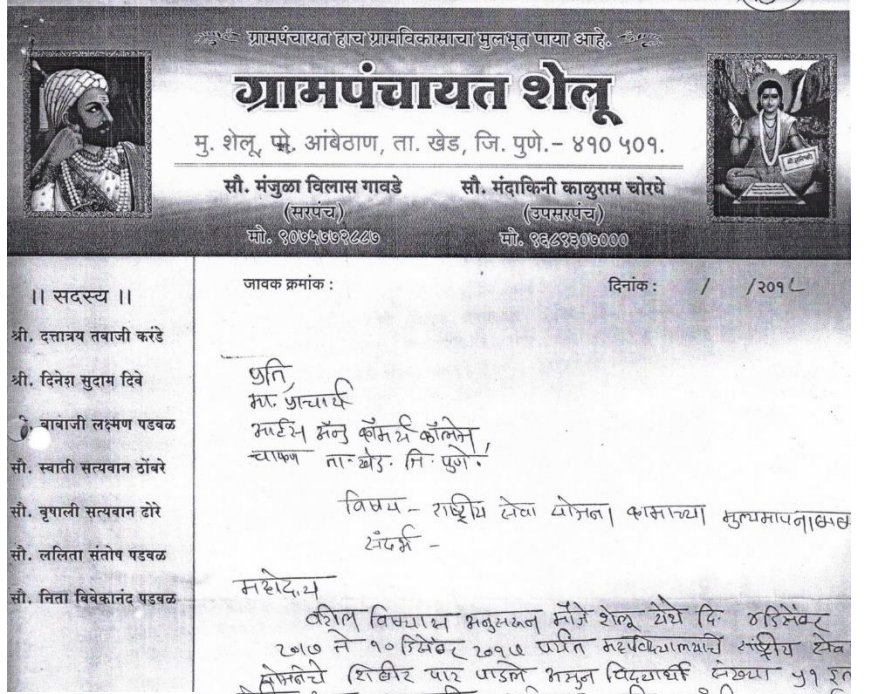 ग्रामपंचायत हाच ग्रामविकासाचा मुलभूत पाया आहे.
ग्रामपंचायत शेलू
मु. शेलू, पो. आंबेठाण, ता. खेड, जि. पुणे.- ४१० ५०१.
सौ. मंजुळा विलास गावडे
(सरपंच)
मो. ९०७५७७२८८७
सौ. मंदाकिनी काळुराम चोरघे
(उपसरपंच)
मो. ९६८९३०७०००
जावक क्रमांक :
दिनांक : / /२०१८
|| सदस्य ||
श्री. दत्तात्रय तबाजी करंडे
श्री. दिनेश सुदाम दिवे
बाबाजी लक्ष्मण पडवळ
सौ. स्वाती सत्यवान ठोंबरे
सौ. वृषाली सत्यवान ढोरे
सौ. ललिता संतोष पडवळ
सौ. निता विवेकानंद पडवळ
प्रति,
मा. प्राचार्य
आर्टस् अॅन्ड कॉमर्स कॉलेज,
चाकण ता. खेड. जि. पुणे.
विषय - राष्ट्रीय सेवा योजना कामाच्या मुल्यमापना
संदर्भ -
महोदय
वरील विषयास अनुसरून मौजे शेलू येथे दि. ४ डिसेंबर
२०१७ ते १० डिसेंबर २०१७ पर्यंत महाविद्यालयाचे राष्ट्रीय सेवा
योजनेचे शिबीर पार पाडले असुन विद्यार्थी संख्या ५१